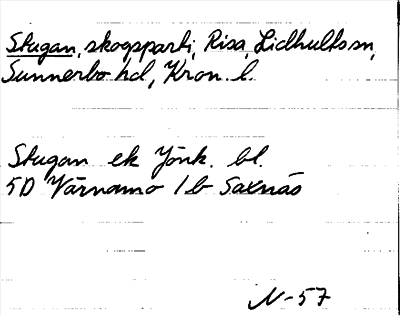 Stugan, skogsparti, Risa, Lidhults sn,
Sunnerbo hd, Kron. l.
Stugan ek Jönk. bl.
5D Värnamo 1b Saxnäs
N-57